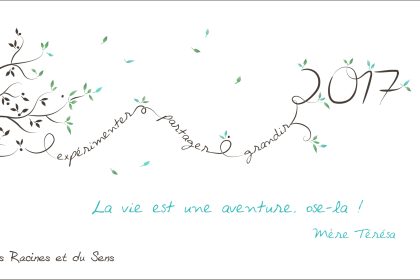 2017
expérimenter partager grandir
La vie est une aventure, ose-la !
Mère Térésa
s Racines et du Sens